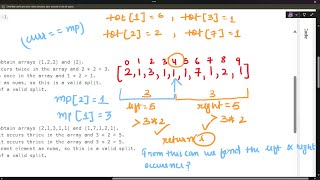 tot[1] = 6, tot[3] = 1
(curr == mp)
tot[2] = 2, tot[7] = 1
obtain arrays [1,2,2] and [2].
occurs twice in the array and 2 * 2 > 3.
occurs once in the array and 1 * 2 > 1.
as nums, so this is a valid split.
of a valid split.
0 1 2 3 4 5 6 7 8 9
[2,1,3,1,1,1,7,1,2,1]
3 3
left = 5 right = 5
mp[2] = 1
mp[1] = 3
> 3*2 > 3*2
return i
obtain arrays [2,1,3,1,1] and [1,7,1,2,1].
occurs thrice in the array and 3 * 2 > 5.
occurs thrice in the array and 3 * 2 > 5.
element as nums, so this is a valid split.
of a valid split.
From this can we find the left & right
occurence?